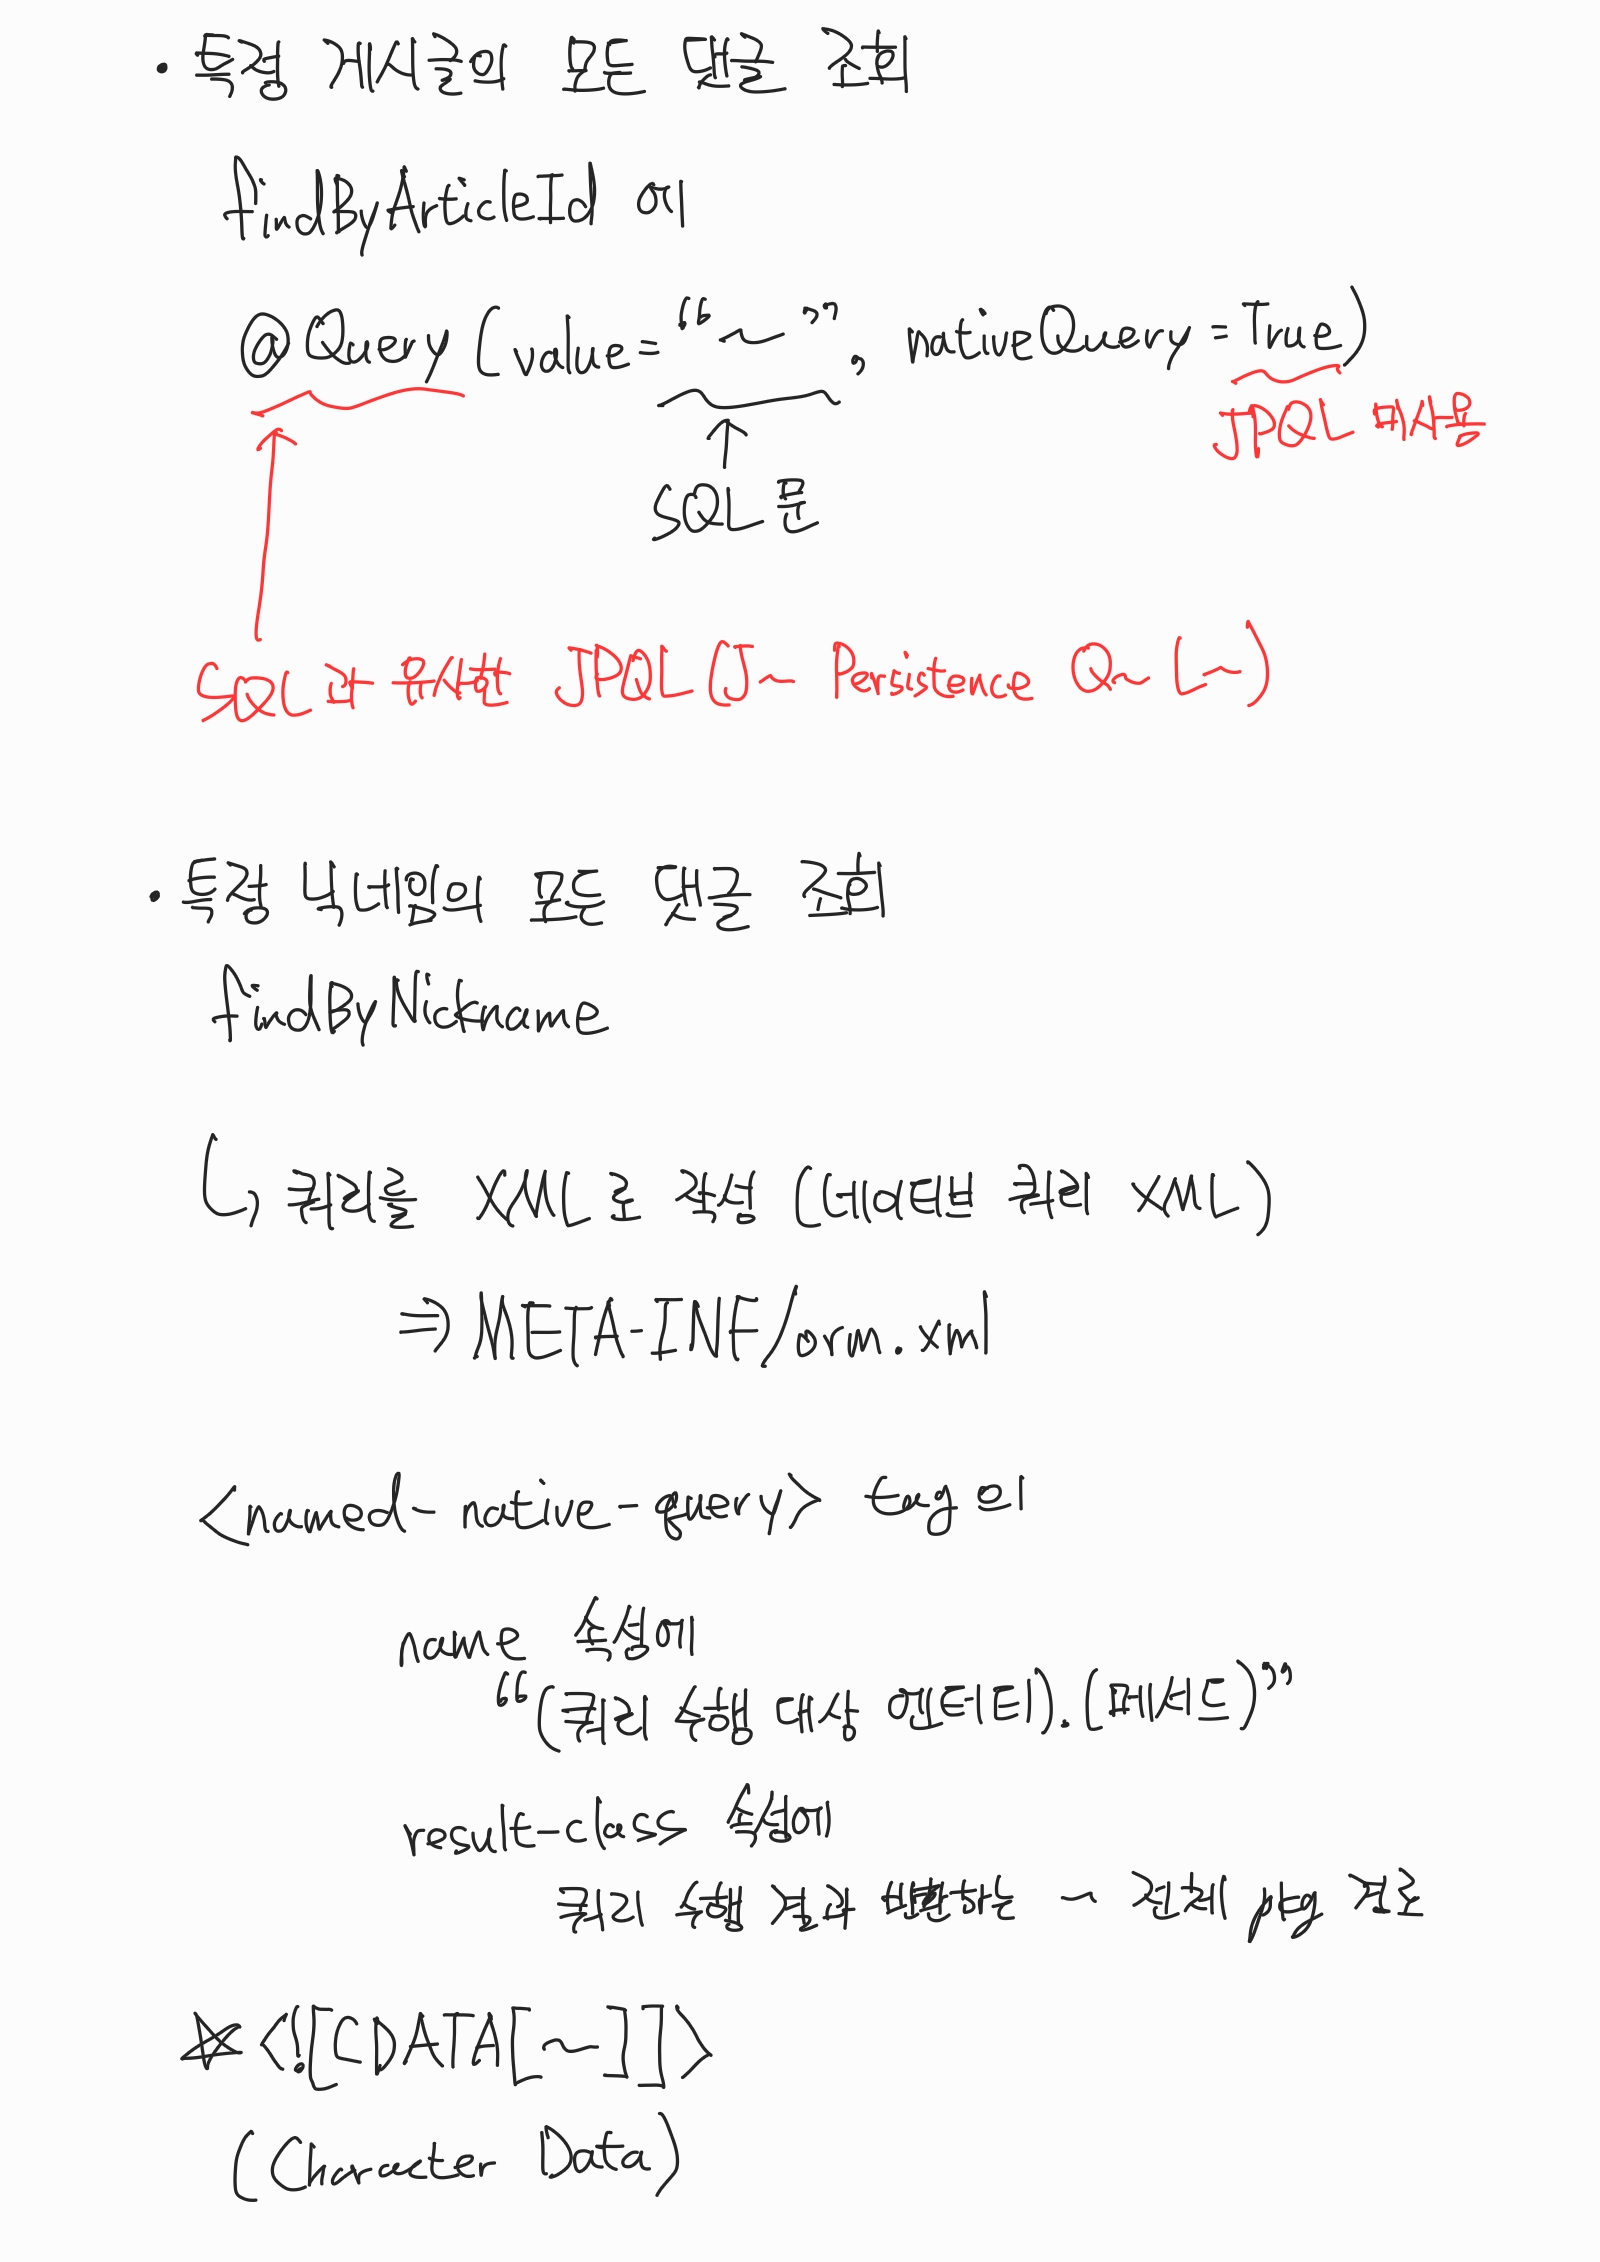 • 특정 게시글의 모든 댓글 조회
findByArticleId 에
@Query (value="~", nativeQuery=True)
JPQL 미사용
SQL문
SQL과 유사한 JPQL (J~ Persistence Q~ L~)
• 특정 닉네임의 모든 댓글 조회
findByNickname
↳ 쿼리를 XML로 작성 (네이티브 쿼리 XML)
⇒ META-INF/orm.xml
<named-native-query> tag 의
name 속성에
"(쿼리 수행 대상 엔티티).(메서드)"
result-class 속성에
쿼리 수행 결과 반환하는 ~ 전체 pkg 경로
☆ <![CDATA[~]]>
(Character Data)